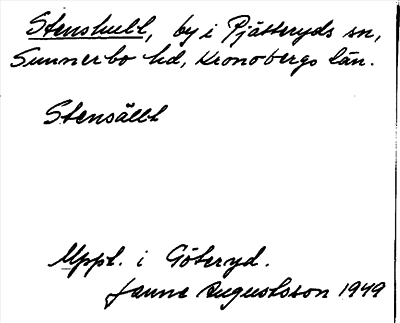 Stenshult, by i Pjätteryds sn,
Sunnerbo hd, Kronobergs län.
Stensällt
Uppt. i Göteryd.
Janne Augustsson 1949